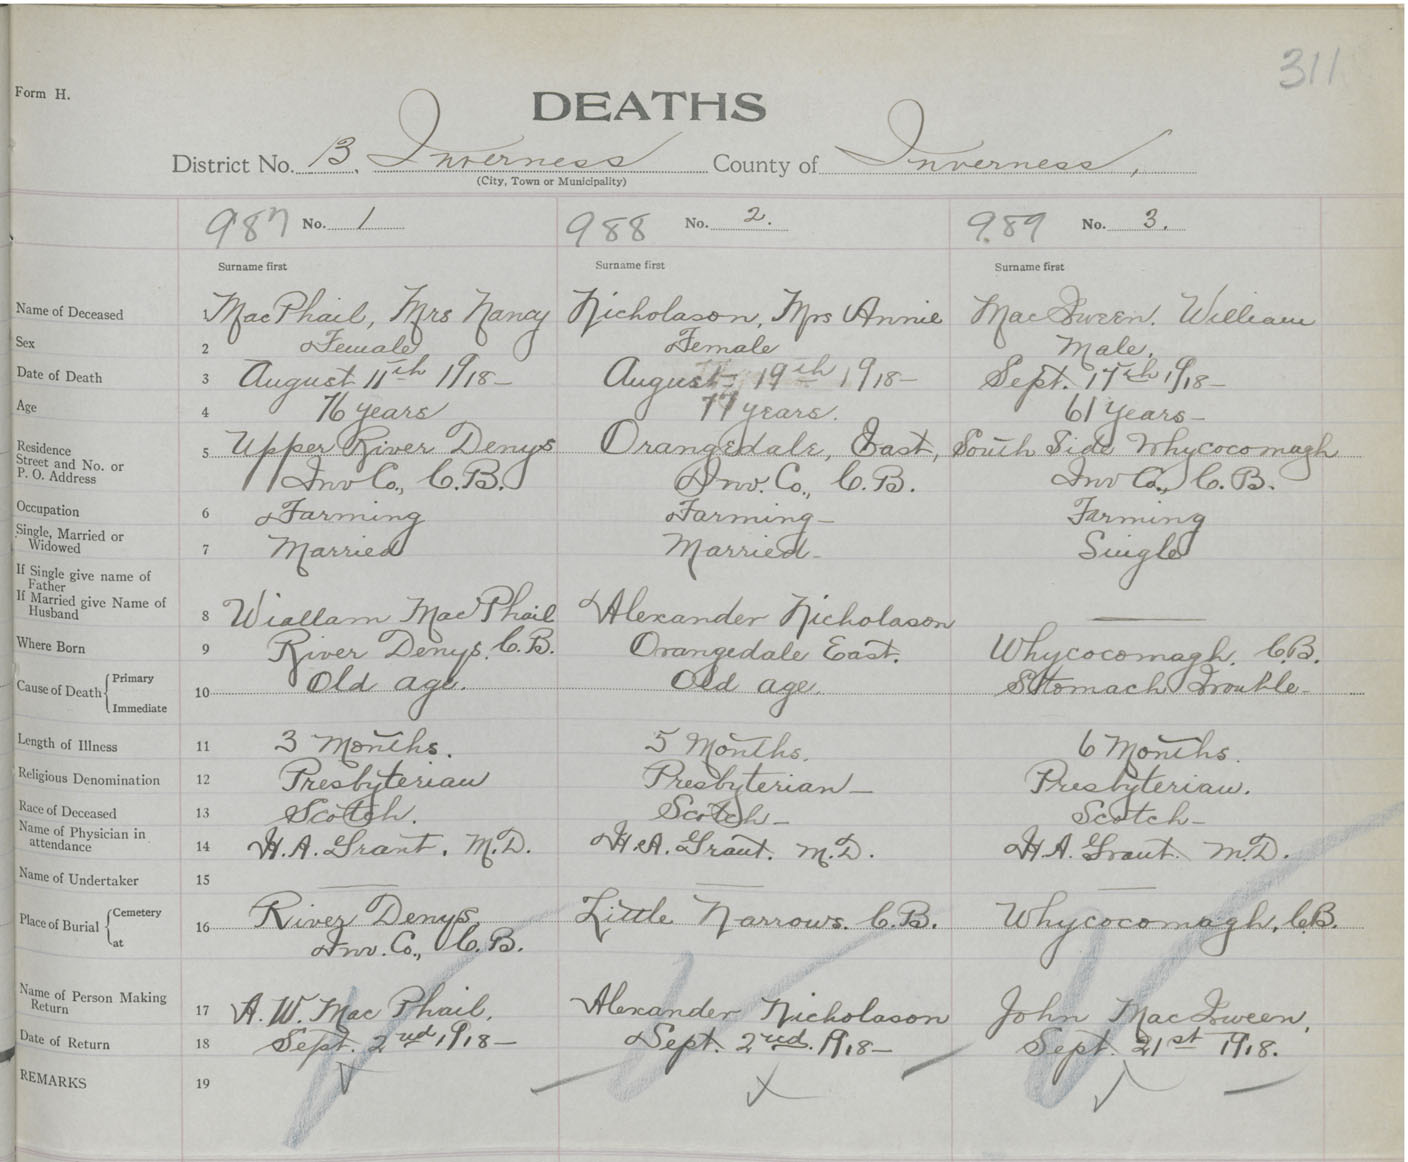 311
Form H.
DEATHS
District No. 13. Inverness County of Inverness,
(City, Town or Municipality)
987 No. 1 988 No. 2. 989 No. 3.
Surname first Surname first Surname first
Name of Deceased 1 MacPhail, Mrs Nancy Nicholason, Mrs Annie MacSween. William
Sex 2 Female Female Male.
Date of Death 3 August 11th 1918- August 19th 1918- Sept. 17th 1918-
Age 4 76 years 77 years. 61 years-
Residence
Street and No. or
P. O. Address
5 Upper River Denys Orangedale, East, South Side Whycocomagh
Inv Co., C.B. Inv. Co., C.B. Inv Co., C.B.
Occupation 6 Farming Farming- Farming
Single, Married or
Widowed 7 Married Married- Single
If Single give name of
Father
If Married give Name of
Husband 8 Wiallam MacPhail Alexander Nicholason
Where Born 9 River Denys. C.B. Orangedale East. Whycocomagh. C.B.
Cause of Death Primary
Immediate 10 Old age. Old age. Stomach Trouble-
Length of Illness 11 3 Months. 5 Months. 6 Months.
Religious Denomination 12 Presbyterian Presbyterian- Presbyterian.
Race of Deceased 13 Scotch. Scotch- Scotch-
Name of Physician in
attendance 14 H.A. Grant. M.D. H.A. Grant. M.D. H.A. Grant. M.D.
Name of Undertaker 15
Place of Burial Cemetery
at 16 River Denys Little Narrows. C.B. Whycocomagh. C.B.
Inv. Co., C.B.
Name of Person Making
Return 17 A. W. MacPhail. Alexander Nicholason John MacSween,
Date of Return 18 Sept. 2nd, 1918- Sept. 2nd. 1918- Sept. 21st 1918.
REMARKS 19